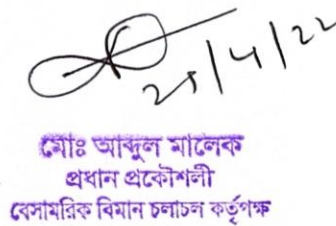 মোঃ আব্দুল মালেক
প্রধান প্রকৌশলী
বেসামরিক বিমান চলাচল কর্তৃপক্ষ